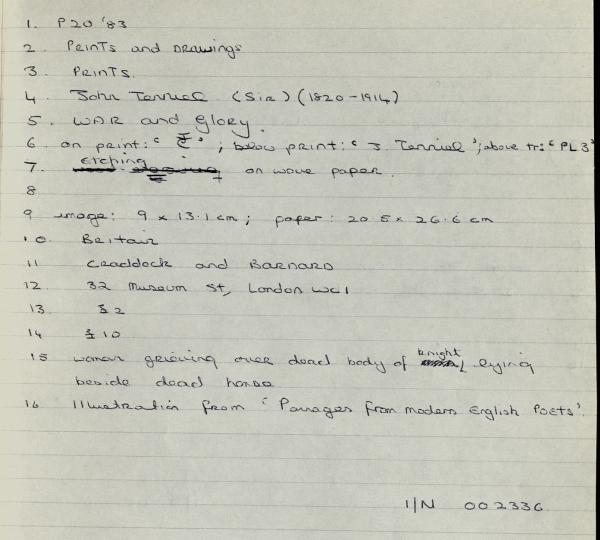 1. P20 '83
2. Prints and Drawings
3. Prints.
4. John Tenniel (Sir) (1820-1914)
5. War and Glory.
6 on print: ' '; below print: ' J. Tenniel '; above tr: ' PL 3'
7. etching on wove paper.
8
9 image: 9 x 13.1 cm; paper: 20.5 x 26.6 cm
10. Britain
11 Craddock and Barnard
12. 32 Museum St, London WC1
13. £2
14 £10
15 woman grieving over dead body of knight lying
beside dead horse
16 Illustration from ' Passages from modern English Poets'.
I/N 002336